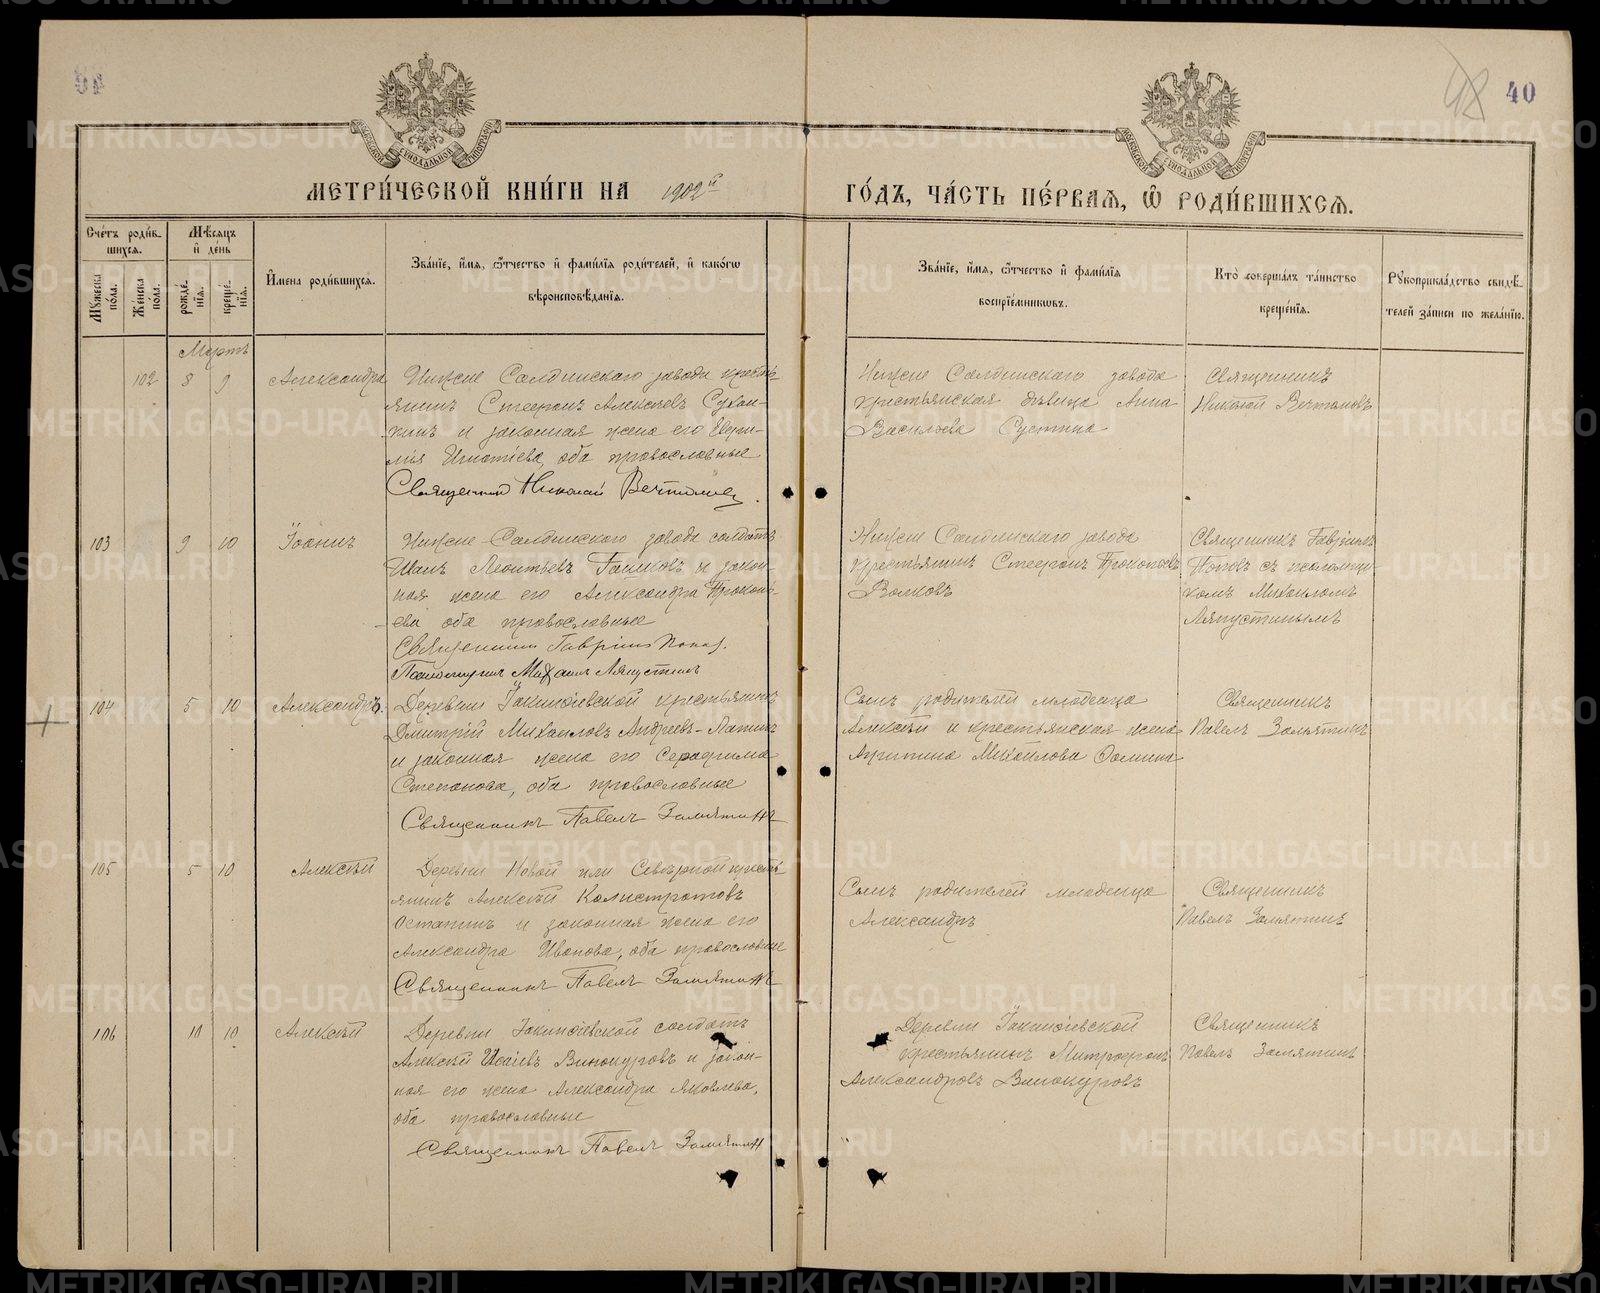 40
МЕТРИ́ЧЕСКОЙ КНИ́ГИ НА 1902й ГО́ДЪ, ЧА́СТЬ ПЕ́РВАѦ, Ѡ҆ РОДИ́ВШИХСѦ.
Сче́тъ роди́вшихсѧ.
Мꙋ́жеска по́ла.
Же́нска по́ла.
Мѣ́сѧцъ и҆ де́нь
рожде́нїѧ.
креще́нїѧ.
И҆мена роди́вшихсѧ.
Зва́нїе, и҆́мѧ, ѻ҆́тчество и҆ фами́лїѧ роди́телей, и҆ како́гѡ
вѣроисповѣ́данїѧ.
Зва́нїе, и҆́мѧ, ѻ҆́тчество и҆ фами́лїѧ
воспрїе́мниковъ.
Кто̀ соверша́лъ та́инство
креще́нїѧ.
Рꙋкоприкла́дство свидѣ́телей за́писи по жела́нїю.
Мартъ
102 8 9 Александра
Нижне Салдинскаго завода кресть-
янинъ Стефанъ Алексѣевъ Сухан-
кинъ и законная жена его Евфи-
мія Игнатіева, оба православные
Священник Николай
Нижне Салдинскаго завода
крестьянская дѣвица Анна
Васильева Сустина
Священникъ
Николай
103 9 10 Іоаннъ
Нижне-Салдинскаго завода солдатъ
Иванъ Леонтьевъ и закон-
ная жена его Александра Прокопь-
ева оба православные
Священникъ Гавріилъ Попов.
Псаломщикъ Михаилъ Ляпустинъ
Нижне Салдинскаго завода
крестьянинъ Стефанъ Прокопьевъ
Волковъ
Священникъ Гавріилъ
Поповъ съ псаломщи-
комъ Михаиломъ
Ляпустинымъ
104 5 10 Александръ.
Деревни Іакинфіевской крестьянинъ
Дмитрій Михаиловъ Андреевъ-Лапинъ
и законная жена его Серафима
Степанова, оба православные
Священникъ Павелъ Замятинъ
Сынъ родителей младенца
Алексѣй и крестьянская жена
Агрипина Михайлова Фомина
Священникъ
Павелъ Замятинъ
105 5 10 Алексѣй
Деревни Новой или Сѣверной кресть-
янинъ Алексѣй Калистратовъ
Остапинъ и законная жена его
Александра Иванова, оба православные
Священникъ Павелъ Замятинъ
Сынъ родителей младенца
Александръ
Священникъ
Павелъ Замятинъ
106 10 10 Алексѣй
Деревни Іакинфіевской солдатъ
Алексѣй Исаіевъ Винокуровъ и закон-
ная его жена Александра Яковлева,
оба православные
Священникъ Павелъ Замятин
Деревни Іакинфіевской
крестьянинъ Митрофанъ
Александровъ Винокуровъ
Священникъ
Павелъ Замятинъ
METRIKI.GASO-URAL.RU